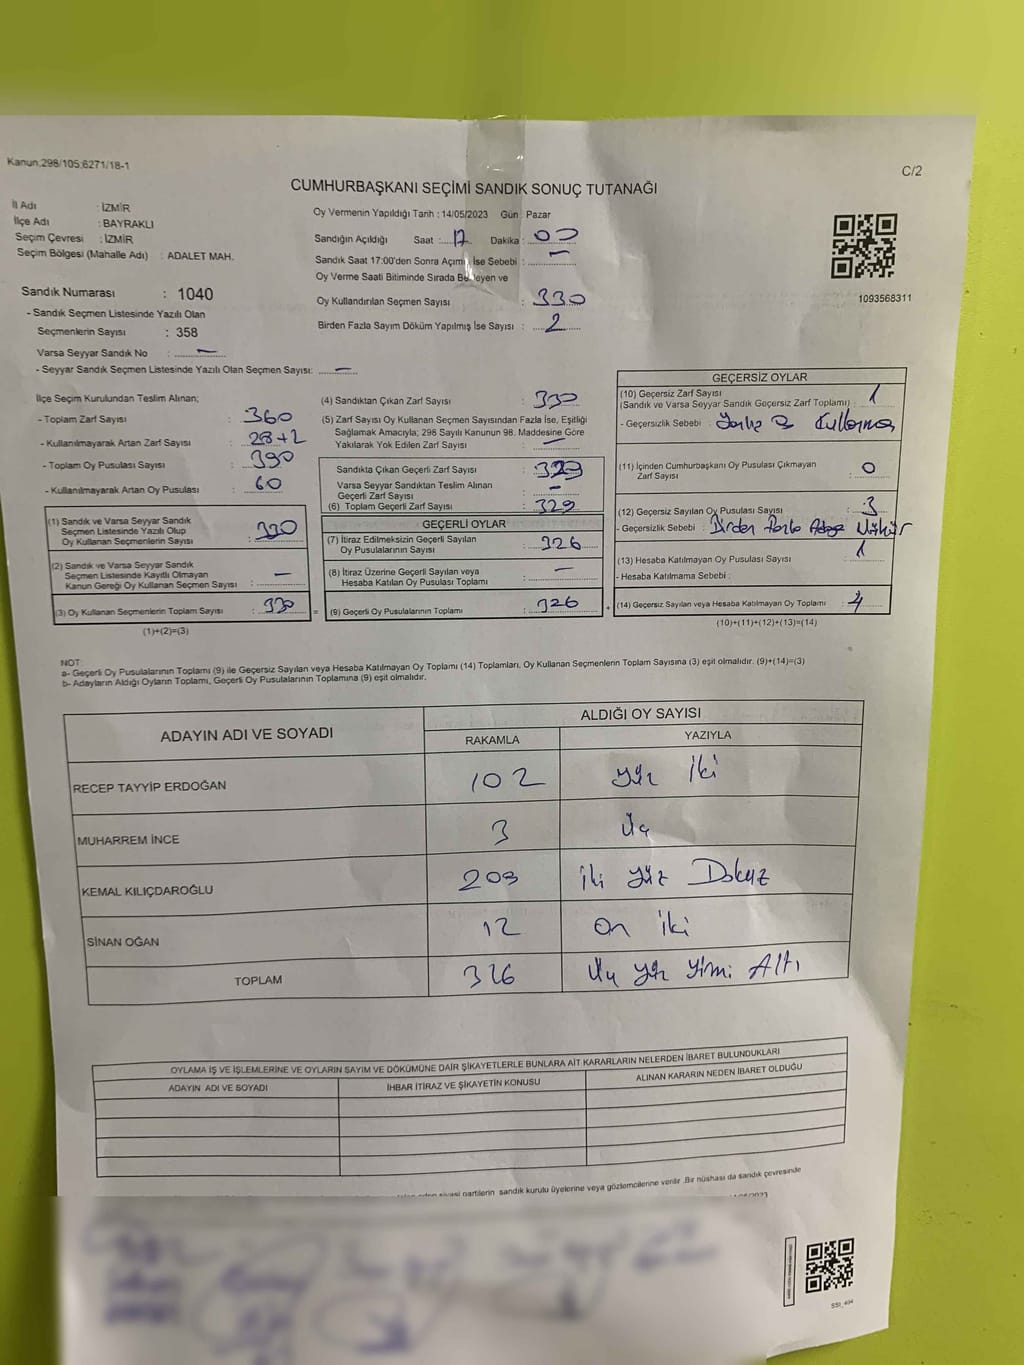 Kanun:298/105:6271/18-1
C/2
CUMHURBAŞKANI SEÇİMİ SANDIK SONUÇ TUTANAĞI
İl Adı : İZMİR
İlçe Adı : BAYRAKLI
Seçim Çevresi : İZMİR
Seçim Bölgesi (Mahalle Adı) : ADALET MAH.
Sandık Numarası : 1040
- Sandık Seçmen Listesinde Yazılı Olan
Seçmenlerin Sayısı : 358
Varsa Seyyar Sandık No : —
- Seyyar Sandık Seçmen Listesinde Yazılı Olan Seçmen Sayısı: —
Oy Vermenin Yapıldığı Tarih : 14/05/2023 Gün : Pazar
Sandığın Açıldığı Saat : 17 Dakika : 00
Sandık Saat 17:00'den Sonra Açımı İse Sebebi : —
Oy Verme Saati Bitiminde Sırada Bekleyen ve
Oy Kullandırılan Seçmen Sayısı : 330
Birden Fazla Sayım Döküm Yapılmış İse Sayısı : 2
1093568311
İlçe Seçim Kurulundan Teslim Alınan;
- Toplam Zarf Sayısı : 360
- Kullanılmayarak Artan Zarf Sayısı : 28+2
- Toplam Oy Pusulası Sayısı : 390
- Kullanılmayarak Artan Oy Pusulası : 60
(1) Sandık ve Varsa Seyyar Sandık
Seçmen Listesinde Yazılı Olup
Oy Kullanan Seçmenlerin Sayısı : 330
(2) Sandık ve Varsa Seyyar Sandık
Seçmen Listesinde Kayıtlı Olmayan
Kanun Gereği Oy Kullanan Seçmen Sayısı : —
(3) Oy Kullanan Seçmenlerin Toplam Sayısı : 330
(1)+(2)=(3)
(4) Sandıktan Çıkan Zarf Sayısı : 330
(5) Zarf Sayısı Oy Kullanan Seçmen Sayısından Fazla İse, Eşitliği
Sağlamak Amacıyla; 298 Sayılı Kanunun 98. Maddesine Göre
Yakılarak Yok Edilen Zarf Sayısı : —
Sandıkta Çıkan Geçerli Zarf Sayısı : 329
Varsa Seyyar Sandıktan Teslim Alınan
Geçerli Zarf Sayısı : —
(6) Toplam Geçerli Zarf Sayısı : 329
GEÇERLİ OYLAR
(7) İtiraz Edilmeksizin Geçerli Sayılan
Oy Pusulalarının Sayısı : 326
(8) İtiraz Üzerine Geçerli Sayılan veya
Hesaba Katılan Oy Pusulası Toplamı : —
= (9) Geçerli Oy Pusulalarının Toplamı : 326 +
GEÇERSİZ OYLAR
(10) Geçersiz Zarf Sayısı
(Sandık ve Varsa Seyyar Sandık Geçersiz Zarf Toplamı) : 1
- Geçersizlik Sebebi :
(11) İçinden Cumhurbaşkanı Oy Pusulası Çıkmayan
Zarf Sayısı : 0
(12) Geçersiz Sayılan Oy Pusulası Sayısı : 3
- Geçersizlik Sebebi : Birden Fazla Adaya Mühür
(13) Hesaba Katılmayan Oy Pusulası Sayısı : 1
- Hesaba Katılmama Sebebi :
(14) Geçersiz Sayılan veya Hesaba Katılmayan Oy Toplamı : 4
(10)+(11)+(12)+(13)=(14)
NOT:
a- Geçerli Oy Pusulalarının Toplamı (9) ile Geçersiz Sayılan veya Hesaba Katılmayan Oy Toplamı (14) Toplamları, Oy Kullanan Seçmenlerin Toplam Sayısına (3) eşit olmalıdır. (9)+(14)=(3)
b- Adayların Aldığı Oyların Toplamı, Geçerli Oy Pusulalarının Toplamına (9) eşit olmalıdır.
ADAYIN ADI VE SOYADI ALDIĞI OY SAYISI
RAKAMLA YAZIYLA
RECEP TAYYİP ERDOĞAN 102 Yüz İki
MUHARREM İNCE 3 Üç
KEMAL KILIÇDAROĞLU 209 İki Yüz Dokuz
SİNAN OĞAN 12 On İki
TOPLAM 326 Üç Yüz Yirmi Altı
OYLAMA İŞ VE İŞLEMLERİNE VE OYLARIN SAYIM VE DÖKÜMÜNE DAİR ŞİKAYETLERLE BUNLARA AİT KARARLARIN NELERDEN İBARET BULUNDUKLARI
ADAYIN ADI VE SOYADI İHBAR İTİRAZ VE ŞİKAYETİN KONUSU ALINAN KARARIN NEDEN İBARET OLDUĞU
partilerin sandık kurulu üyelerine veya gözlemcilerine verilir .Bir nüshası da sandık çevresinde